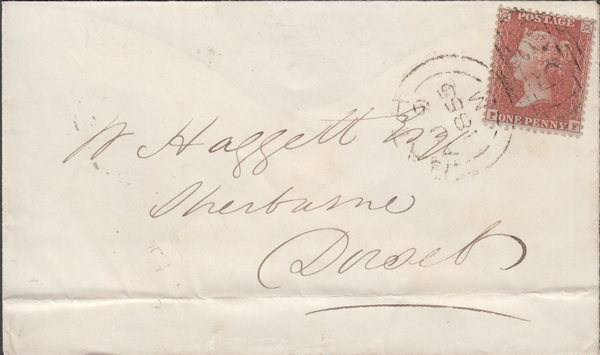 POSTAGE
ONE PENNY
W Haggett Esq
Sherburne
Dorset